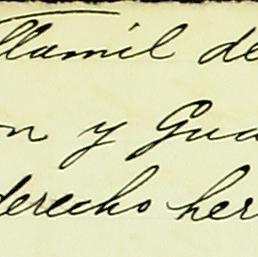 llamil de
on y Gua
derecho her